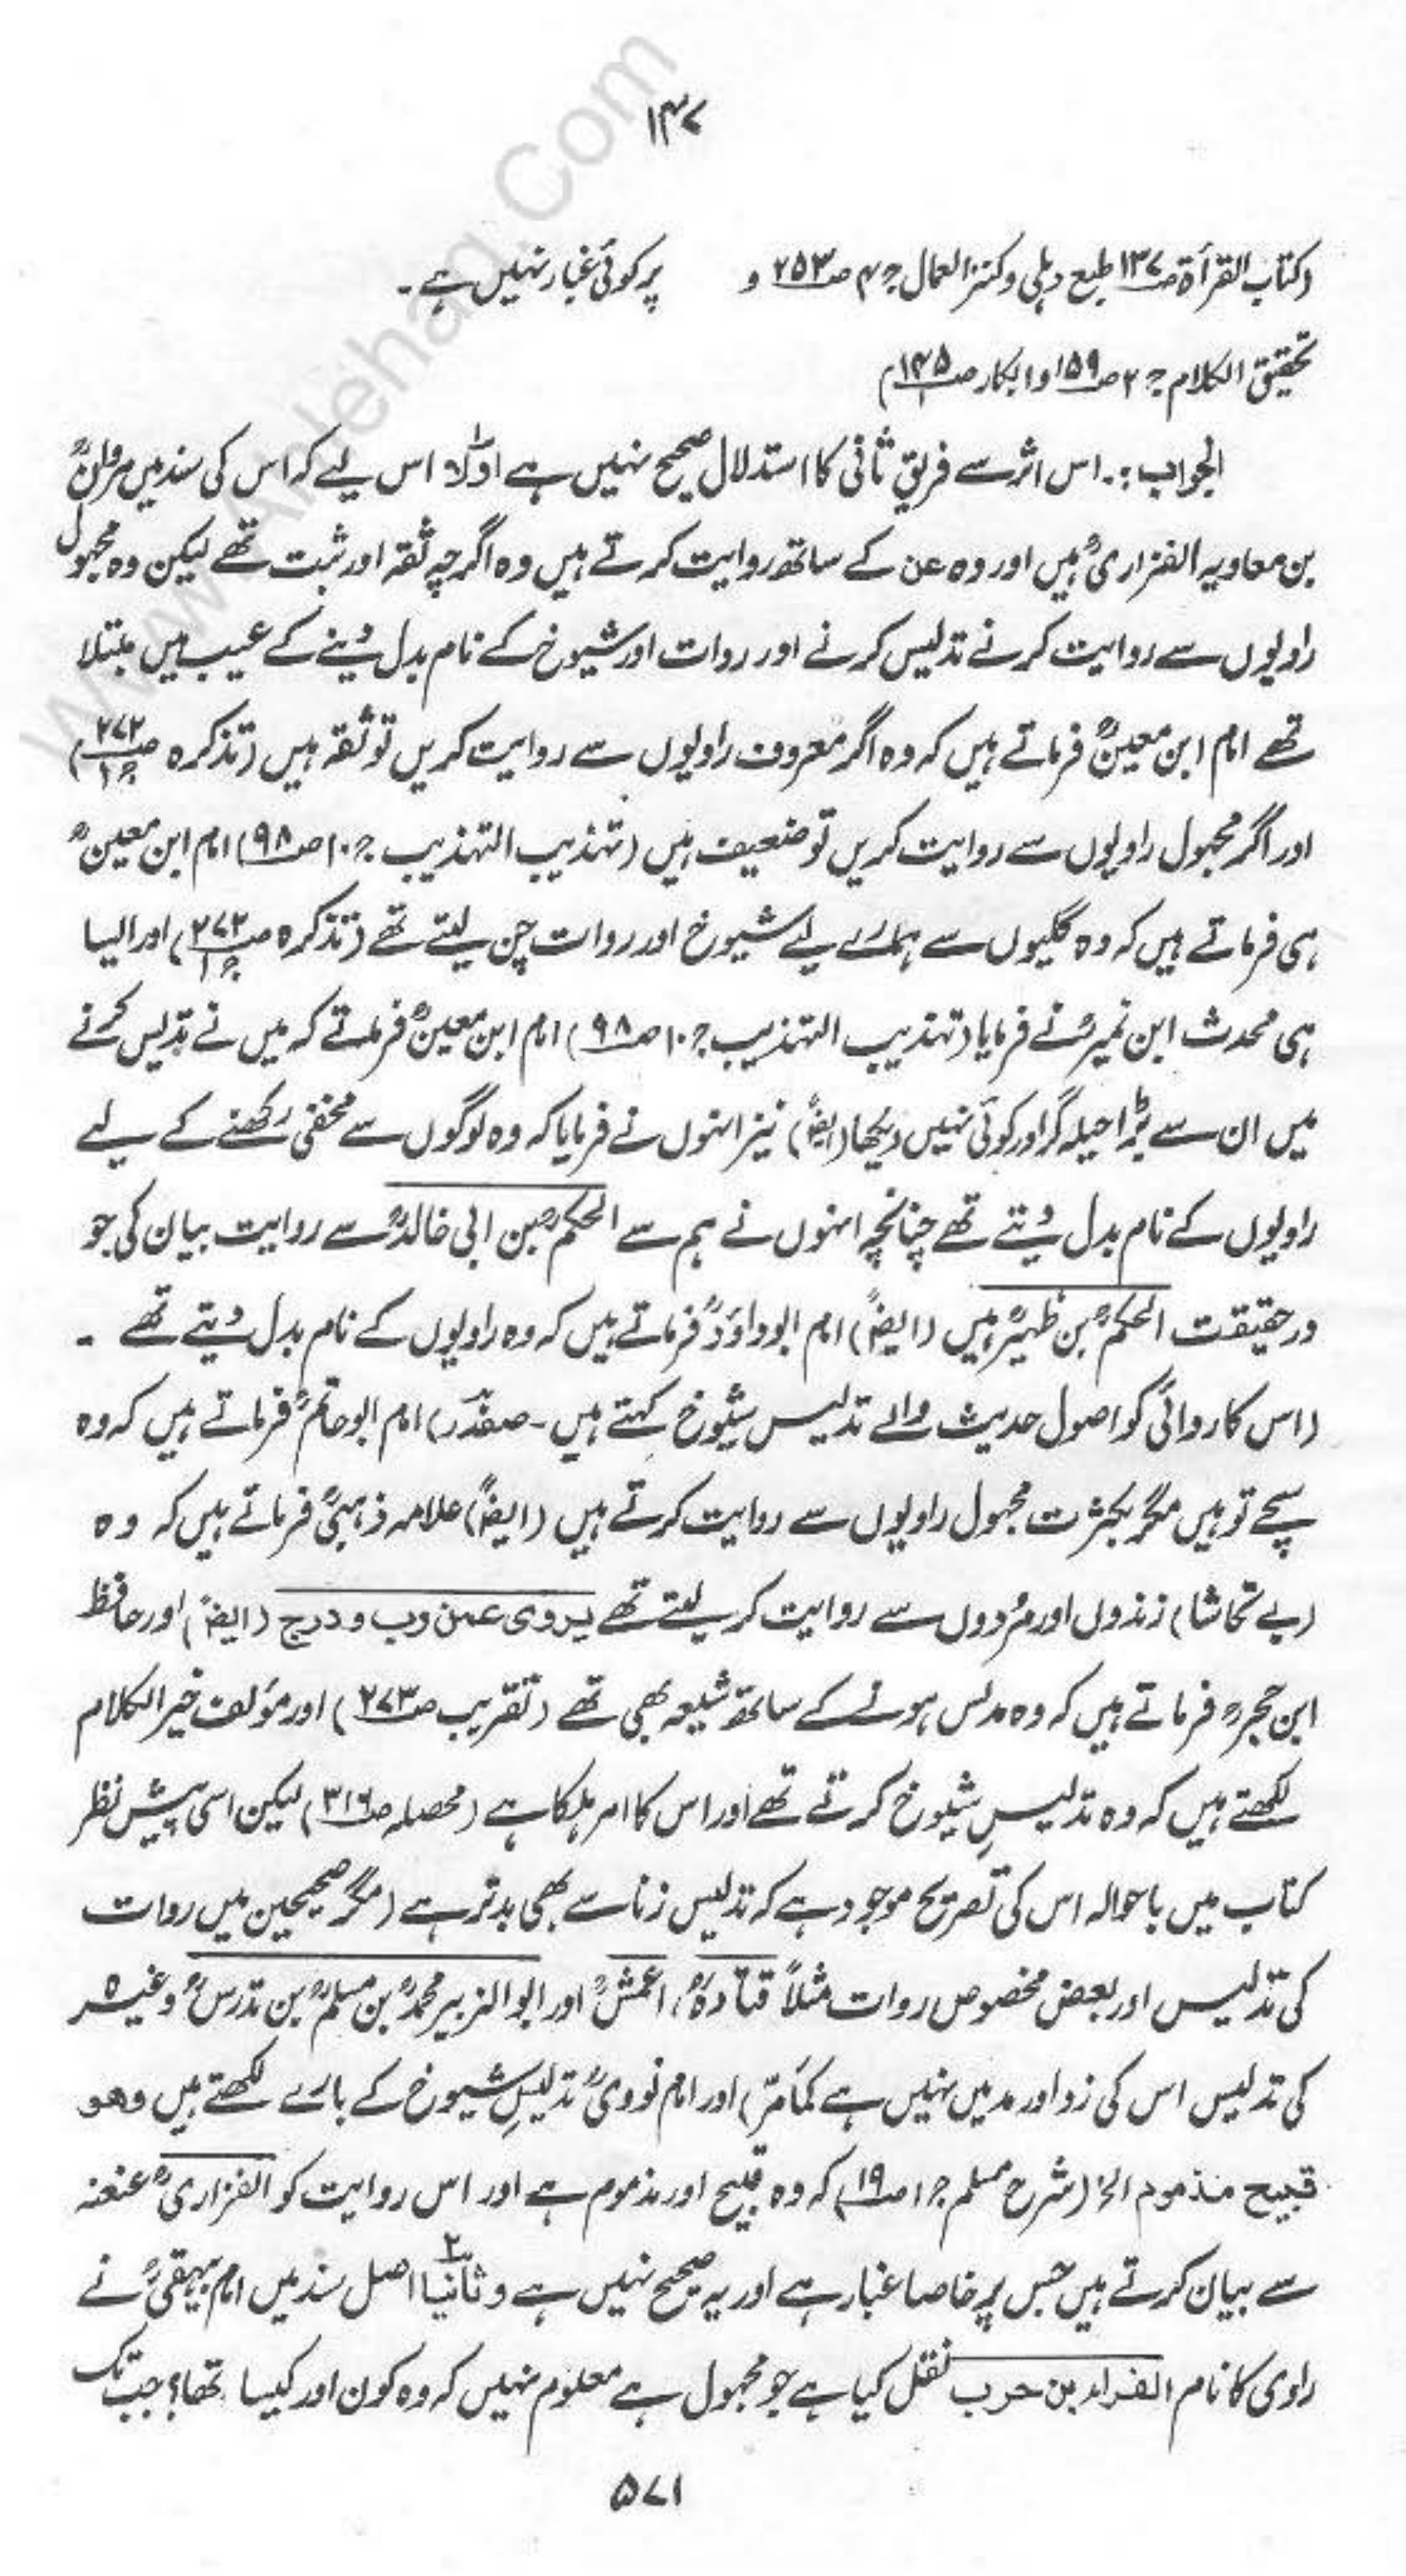 ۱۴۷
(کتاب القرأۃ صـ۱۳۷ طبع دہلی وکنز العمال جـ۴ صـ۲۵۳ و پر کوئی غبار نہیں ہے۔
تحقیق الکلام جـ۲ صـ۱۵۹ و ابکار صـ۱۴۵)
الجواب:۔ اس اثر سے فریقِ ثانی کا استدلال صحیح نہیں ہے اوّلاً اس لیے کہ اس کی سند میں مروانؒ
بن معاویہ الفزاریؒ ہیں اور وہ عن کے ساتھ روایت کرتے ہیں وہ اگرچہ ثقہ اور ثبت تھے لیکن وہ مجہول
راویوں سے روایت کرنے تدلیس کرنے اور روات اور شیوخ کے نام بدل دینے کے عیب میں مبتلا
تھے امام ابن معینؒ فرماتے ہیں کہ وہ اگر معروف راویوں سے روایت کریں تو ثقہ ہیں (تذکرہ صـ۲۷۲ جـ۱)
اور اگر مجہول راویوں سے روایت کریں تو ضعیف ہیں (تہذیب التہذیب جـ۱۰ صـ۹۸) امام ابن معینؒ
ہی فرماتے ہیں کہ وہ گلیوں سے ہمارے لیے شیوخ اور روات چن لیتے تھے (تذکرہ صـ۲۷۲ جـ۱) اور ایسا
ہی محدث ابن نمیرؒ نے فرمایا (تہذیب التہذیب جـ۱۰ صـ۹۸) امام ابن معینؒ فرماتے کہ میں نے تدلیس کرنے
میں ان سے بڑا حیلہ گر اور کوئی نہیں دیکھا (ایضاً) نیز انہوں نے فرمایا کہ وہ لوگوں سے مخفی رکھنے کے لیے
راویوں کے نام بدل دیتے تھے چنانچہ انہوں نے ہم سے الحکمؒ بن ابی خالدؒ سے روایت بیان کی جو
درحقیقت الحکمؒ بن ظہیرؒ ہیں (ایضاً) امام ابوداؤدؒ فرماتے ہیں کہ وہ راویوں کے نام بدل دیتے تھے ۔
(اس کاروائی کو اصول حدیث والے تدلیس شیوخ کہتے ہیں۔ صفدر) امام ابوحاتمؒ فرماتے ہیں کہ وہ
سچے تو ہیں مگر بکثرت مجہول راویوں سے روایت کرتے ہیں (ایضاً) علامہ ذہبیؒ فرماتے ہیں کہ وہ
(بے تحاشا) زندوں اور مُردوں سے روایت کر لیتے تھے یروی عمن دب و درج (ایضاً) اور حافظ
ابن حجرؒ فرماتے ہیں کہ وہ مدلس ہونے کے ساتھ شیعہ بھی تھے (تقریب صـ۲۷۳) اور مؤلف خیر الکلام
لکھتے ہیں کہ وہ تدلیسِ شیوخ کرتے تھے اور اس کا امر ہلکا ہے (محصلہ صـ۳۱۶) لیکن اسی پیشِ نظر
کتاب میں باحوالہ اس کی تصریح موجود ہے کہ تدلیس زنا سے بھی بدتر ہے (مگر صحیحین میں روات
کی تدلیس اور بعض مخصوص روات مثلاً قتادہؒ، اعمشؒ اور ابوالزبیر محمدؒ بن مسلمؒ بن تدرسؒ وغیرہ
کی تدلیس اس کی زد اور مد میں نہیں ہے کمَا مَرّ) اور امام نوویؒ تدلیسِ شیوخ کے بارے لکھتے ہیں وھو
قبیح مذموم الخ (شرح مسلم جـ۱ صـ۱۹) کہ وہ قبیح اور مذموم ہے اور اس روایت کو الفزاریؒ عنعنہ
سے بیان کرتے ہیں جس پر خاصا غبار ہے اور یہ صحیح نہیں ہے وثانیًا ۲ اصل سند میں امام بیہقیؒ نے
راوی کا نام الفزار بن حرب نقل کیا ہے جو مجہول ہے معلوم نہیں کہ وہ کون اور کیسا تھا؟ جب تک
۵۷۱
www.Ahlehaq.Com